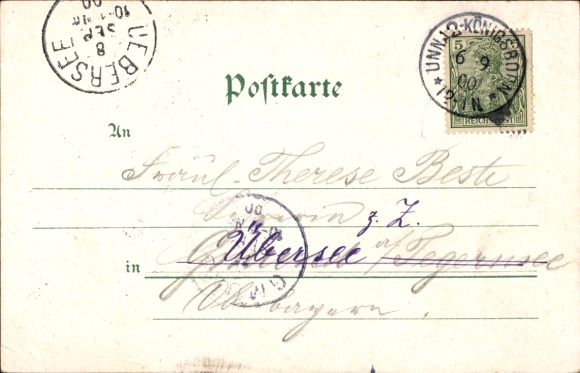 UEBERSEE
8
SEP.
00
UNNA-KÖNIGSBORN
6 9
00
5
REICHSPOST
Postkarte
An
Fräul. Therese Beste
z. Z.
Übersee a/Tegernsee
in
Oberbayern.